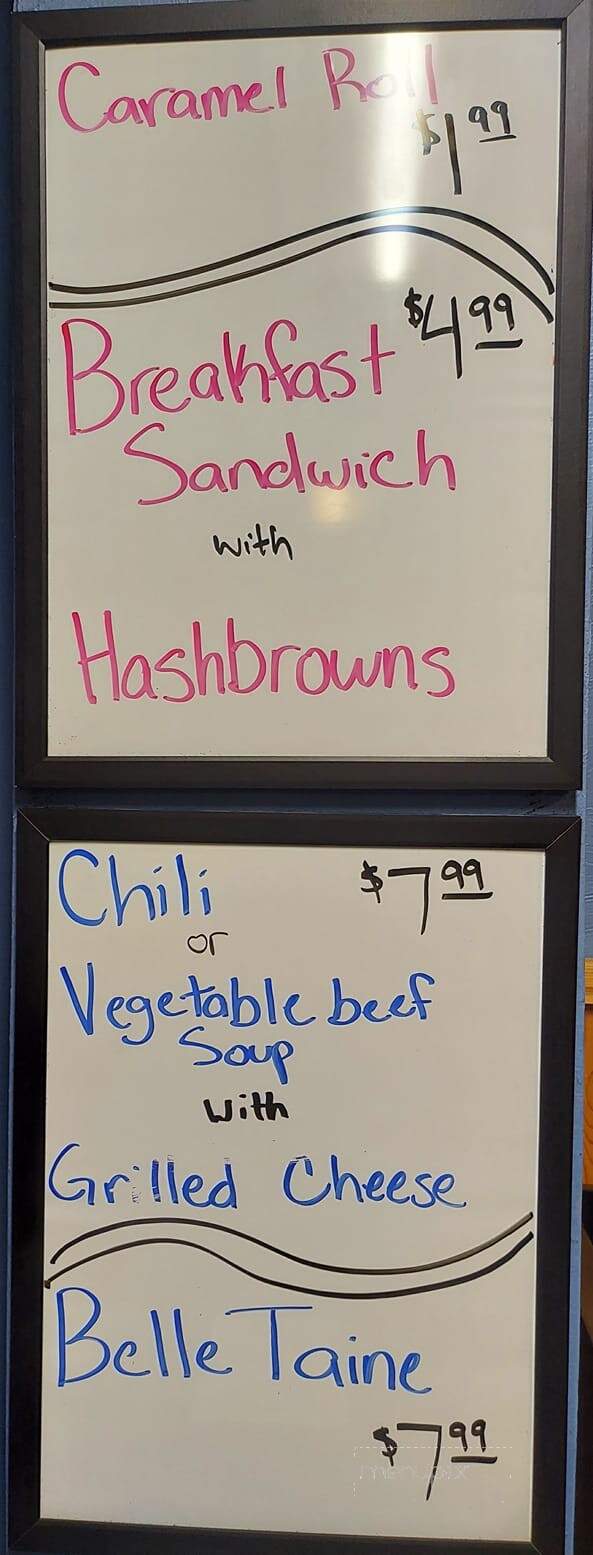 Caramel Roll
$1.99
$4.99
Breakfast
Sandwich
with
Hashbrowns
Chili $7.99
or
Vegetable beef
Soup
with
Grilled Cheese
Belle Taine
$7.99